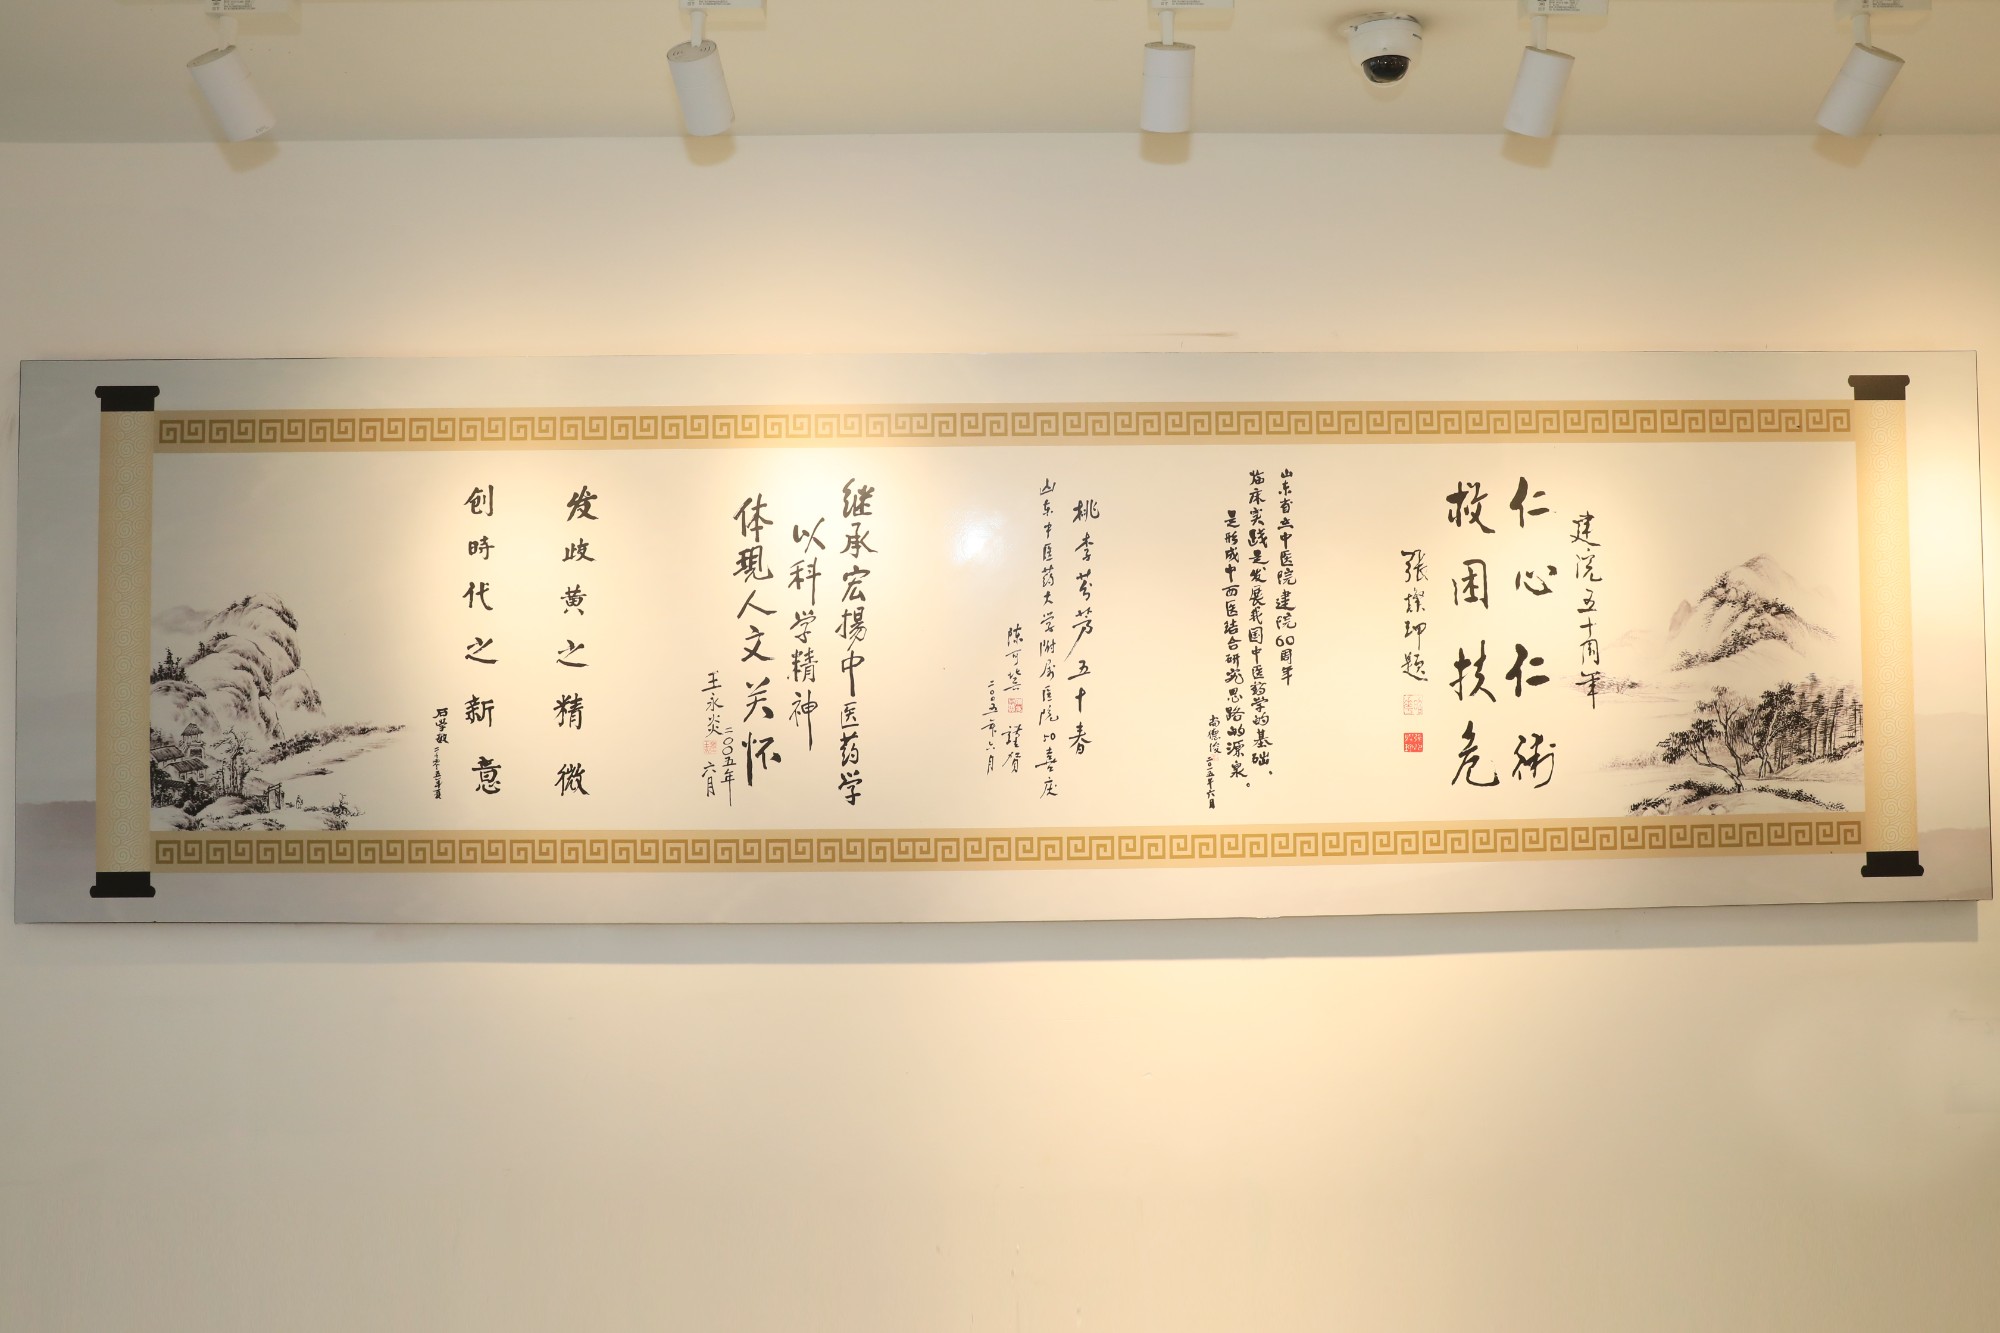 建院五十周年
仁心仁術
救困扶危
張燦玾題
山东省立中医院建院60周年
临床实践是发展我国中医药学的基础、
是形成中西医结合研究思路的源泉。
尚德俊 二〇一五年六月
桃李芬芳五十春
山东中医药大学附属医院50喜庆
陈可冀 谨贺
二〇〇五年六月
继承宏揚中医药学
以科学精神
体现人文关怀
王永炎
二〇〇五年
六月
发歧黄之精微
创時代之新意
石学敏